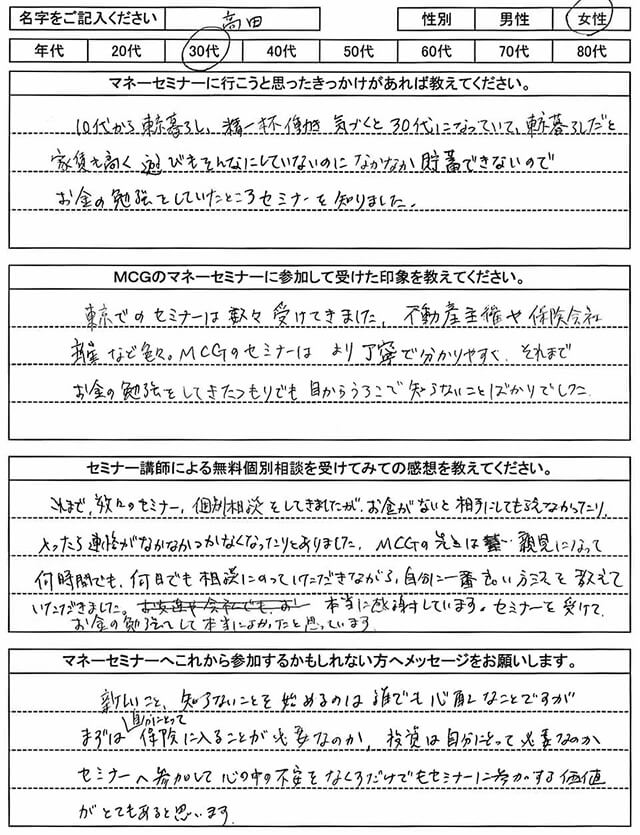 名字をご記入ください 高田 性別 男性 女性
年代 20代 30代 40代 50代 60代 70代 80代
マネーセミナーに行こうと思ったきっかけがあれば教えてください。
10代から東京暮らし、精一杯働き 気づくと30代になっていて、東京暮らしだと
家賃も高く 遊びもそんなにしていないのに なかなか貯蓄できないので
お金の勉強をしていたところセミナーを知りました。
MCGのマネーセミナーに参加して受けた印象を教えてください。
東京でのセミナーは数々受けてきました。不動産主催や保険会社
主催など色々。MCGのセミナーは より丁寧で分かりやすく、それまで
お金の勉強をしてきたつもりでも目からうろこで知らないことばかりでした
セミナー講師による無料個別相談を受けてみての感想を教えてください。
これまで、数々のセミナー、個別相談をしてきましたが、お金がないと相手にしてもらえなかったり、
入ったら連絡がなかなかつかなくなったりとありました。MCGの先生は 親身になって
何時間でも、何日でも相談にのっていただきながら、自分に一番良い方法を教えて
いただきました。 本当に感謝しています。セミナーを受けて、
お金の勉強をして本当によかったと思っています。
マネーセミナーへこれから参加するかもしれない方へメッセージをお願いします。
新しいこと、知らないことを始めるのは誰でも心配なことですが
まずは 自分にとって 保険に入ることが必要なのか、投資は自分にとって必要なのか
セミナーへ参加して心の中の不安をなくすだけでもセミナーに参加する価値
がとてもあると思います。